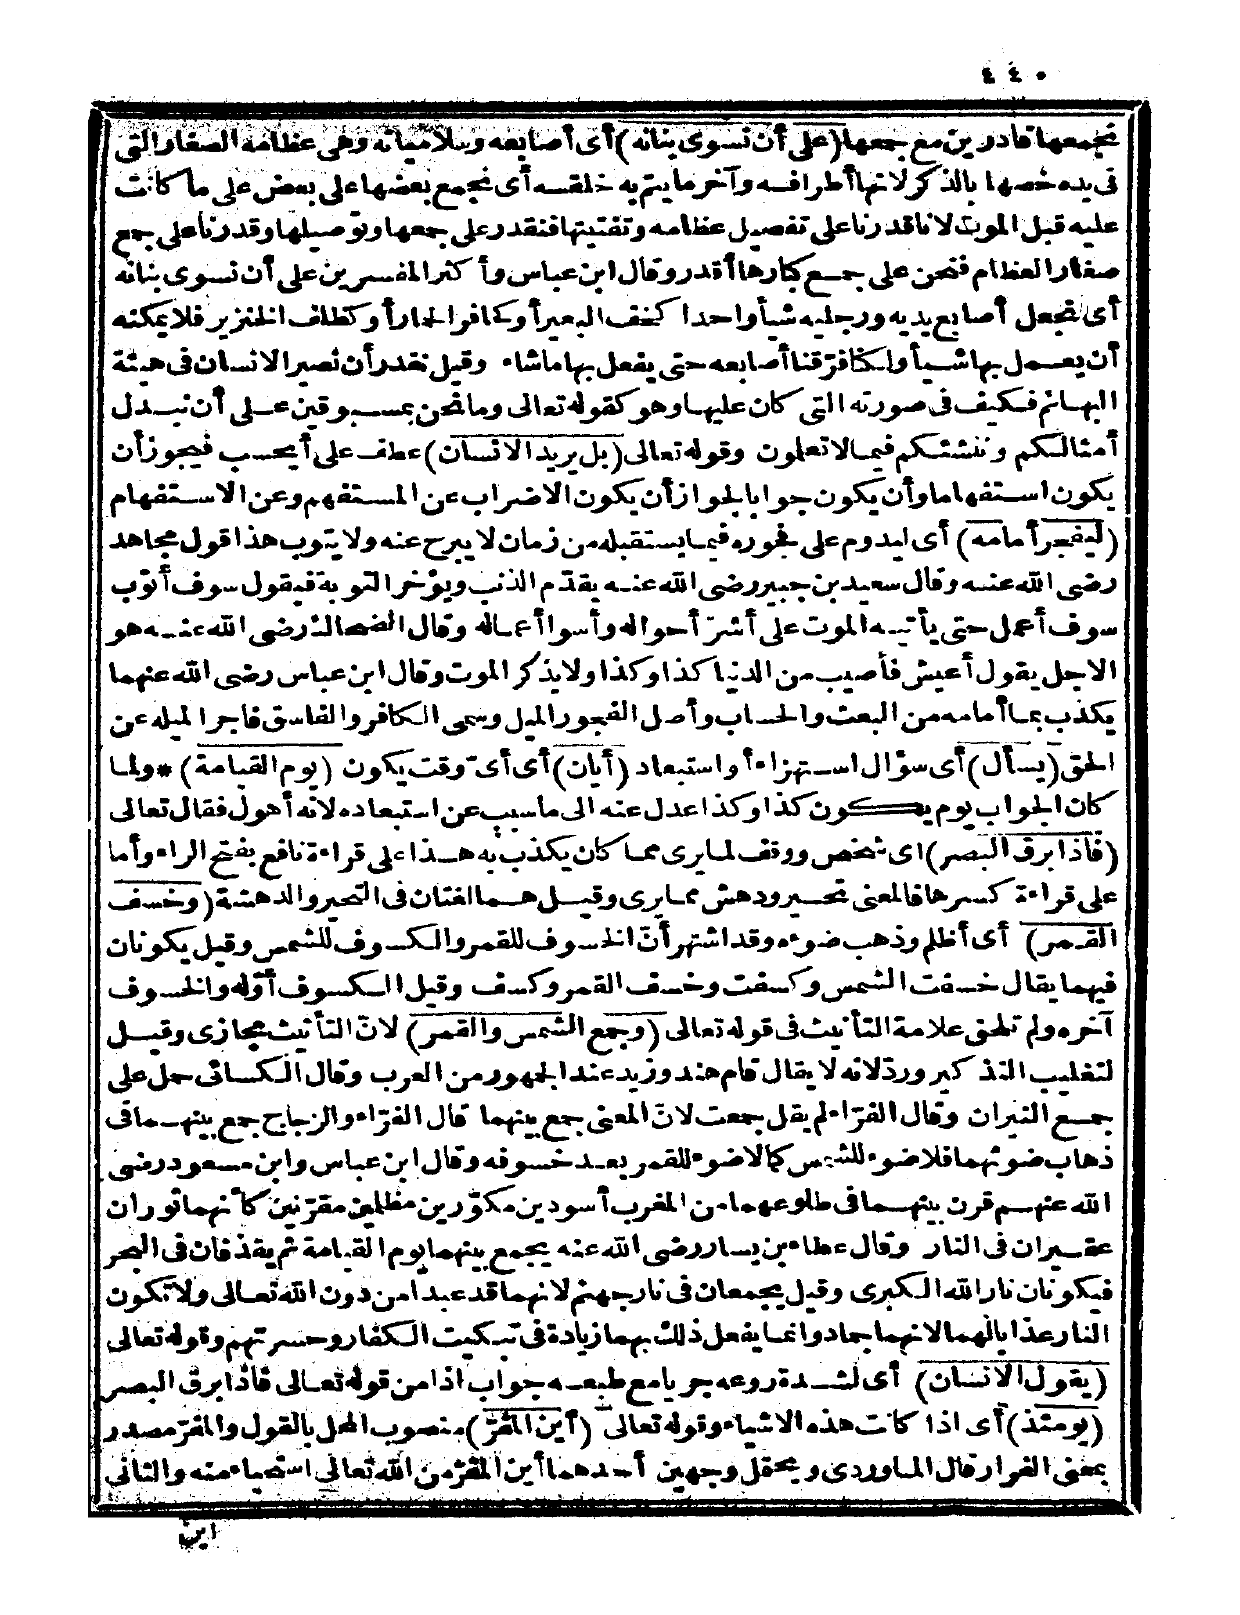 ٤٤٠
نجمعها قادرين مع جمعها (على أن نسوى بنانه) أى أصابعه وسلامياته وهى عظامه الصغار التى
فى يده خصها بالذكر لانها أطرافه وآخر ما يتم به خلقه أى نجمع بعضها على بعض على ما كانت
عليه قبل الموت لاناقدرنا على تفصيل عظامه وتفتيتها فنقدر على جمعها وتوصيلها وقدرنا على جمع
صغار العظام فنحن على جمع كبارها أقدر وقال ابن عباس وأكثر المفسرين على أن نسوى بنانه
أى نجعل أصابع يديه ورجليه شيأ واحدا كخف البعير أو كحافر الحمار أو كظلف الخنزير فلا يمكنه
أن يعمل بها شيأ ولكنا فرّقنا أصابعه حتى يفعل بها ما شاء وقيل نقدر أن نصير الانسان فى هيئة
البهائم فكيف فى صورته التى كان عليها وهو كقوله تعالى وما نحن بمسبوقين على أن نبدل
أمثالكم وننشئكم فيما لا تعلمون وقوله تعالى (بل يريد الانسان) عطف على أيحسب فيجوز أن
يكون استفهاما وأن يكون جوابا لجواز أن يكون الاضراب عن المستفهم وعن الاستفهام
(ليفجر أمامه) أى ليدوم على فجوره فيما يستقبله من زمان لا يبرح عنه ولا يتوب هذا قول مجاهد
رضى الله عنه وقال سعيد بن جبير رضى الله عنه يقدّم الذنب ويؤخر التوبة فيقول سوف أتوب
سوف أعمل حتى يأتيه الموت على أشرّ أحواله وأسوا أعماله وقال الضحاك رضى الله عنه هو
الاجل يقول أعيش فأصيب من الدنيا كذا وكذا ولا يذكر الموت وقال ابن عباس رضى الله عنهما
يكذب بما أمامه من البعث والحساب وأصل الفجور الميل وسمى الكافر والفاسق فاجرا لميله عن
الحق (يسأل) أى سؤال استهزاء أو استبعاد (أيان) أى أىّ وقت يكون (يوم القيامة) * ولما
كان الجواب يوم يكون كذا وكذا عدل عنه الى ما سبب عن استبعاده لانه أهول فقال تعالى
(فاذا برق البصر) اى شخص ووقف لما يرى مما كان يكذب به هذا على قراءة نافع بفتح الراء وأما
على قراءة كسرها فالمعنى تحير ودهش مما يرى وقيل هما لغتان فى التحير والدهشة (وخسف
القمر) أى أظلم وذهب ضوءه وقد اشتهر أنّ الخسوف للقمر والكسوف للشمس وقيل يكونان
فيهما يقال خسفت الشمس وكسفت وخسف القمر وكسف وقيل الكسوف أوّله والخسوف
آخره ولم تلحق علامة التأنيث فى قوله تعالى (وجمع الشمس والقمر) لانّ التأنيث مجازى وقيل
لتغليب التذكير وردّ لانه لا يقال قام هند وزيد عند الجمهور من العرب وقال الكسائى حمل على
جمع النيران وقال الفرّاء لم يقل جمعت لانّ المعنى جمع بينهما قال الفرّاء والزجاج جمع بينهما فى
ذهاب ضوئهما فلا ضوء للشمس كما لا ضوء للقمر بعد خسوفه وقال ابن عباس وابن مسعود رضى
الله عنهم قرن بينهما فى طلوعهما من المغرب أسودين مكوّرين مظلمين مقرّنين كأنهما ثوران
عقيران فى النار وقال عطاء بن يسار رضى الله عنه يجمع بينهما يوم القيامة ثم يقذفان فى البحر
فيكونان نار الله الكبرى وقيل يجمعان فى نار جهنم لانهما قد عبدا من دون الله تعالى ولا تكون
النار عذابا لهما لانهما جماد وانما يفعل ذلك بهما زيادة فى تبكيت الكفار وحسرتهم وقوله تعالى
(يقول الانسان) أى لشدة روعه جريا مع طبعه جواب اذا من قوله تعالى فاذا برق البصر
(يومئذ) أى اذا كانت هذه الاشياء وقوله تعالى (أين المفرّ) منصوب المحل بالقول والمفرّ مصدر
بمعنى الفرار قال الماوردى ويحتمل وجهين أحدهما أين المفرّ من الله تعالى استحياء منه والثانى
اين